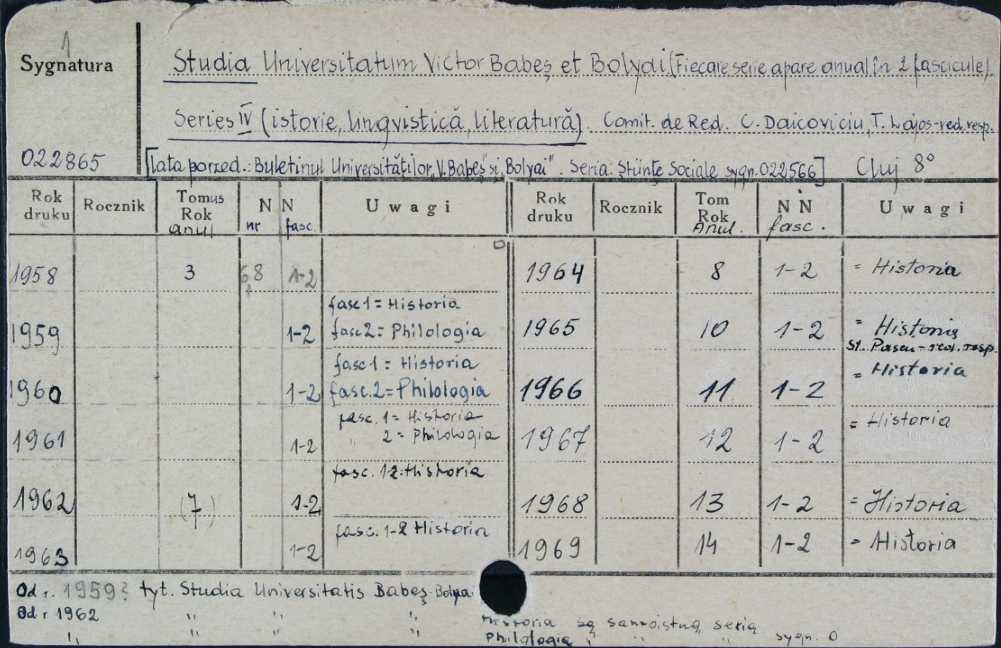 1
Sygnatura
Studia Universitatum Victor Babeş et Bolyai (Fiecare serie apare anual în 2 fascicule).
Series IV (istorie, lingvistică, literatură). Comit. de Red. C. Daicoviciu, T. Lajos-red. resp.
022865 [Lata poprzed.: Buletinul Universităţilor "V. Babeş" si "Bolyai". Seria: Ştiinţe Sociale sygn. 022566] Cluj 8°
Rok druku Rocznik Tomus Rok anul N N nr fasc. Uwagi Rok druku Rocznik Tom Rok Anul. N N fasc. Uwagi
1958 3 1-2 1964 8 1-2 = Historia
1959 1-2 fasc 1 = Historia
fasc 2 = Philologia 1965 10 1-2 = Historia
St. Pascu - red. resp.
1960 1-2 fasc 1 = Historia
fasc. 2 = Philologia 1966 11 1-2 = Historia
1961 1-2 fasc. 1 = Historia
" 2 = Philologia 1967 12 1-2 = Historia
1962 (7) 1-2 fasc. 1-2 = Historia 1968 13 1-2 = Historia
1963 1-2 fasc. 1-2 Historia 1969 14 1-2 = Historia
Od r. 1959? tyt. Studia Universitatis Babeş-Bolyai
Od r 1962 " " " Historia są samoistną serią
" " " Philologia " " " sygn. 0